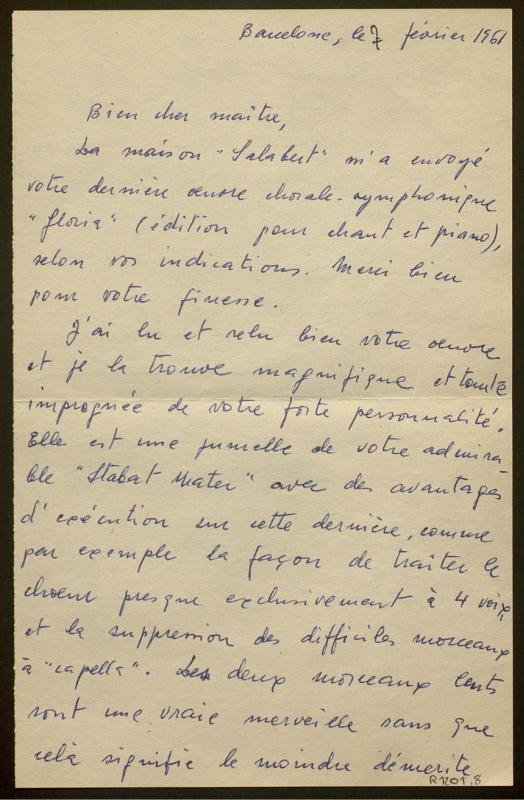 Barcelone, le 7 février 1961
Bien cher maître,
La maison "Salabert" m'a envoyé
votre dernière œuvre chorale-symphonique
"Gloria" (édition pour chant et piano),
selon vos indications. Merci bien
pour votre finesse.
J'ai lu et relu bien votre œuvre
et je la trouve magnifique et toute
impregnée de votre forte personnalité.
Elle est une jumelle de votre admira-
ble "Stabat Mater" avec des avantages
d'exécution sur cette dernière, comme
par exemple la façon de traiter le
choeur presque exclusivement à 4 voix,
et la suppression des difficiles morceaux
à "capella". Les deux morceaux lents
sont une vraie merveille sans que
celà signifie le moindre démerite
R1201.8